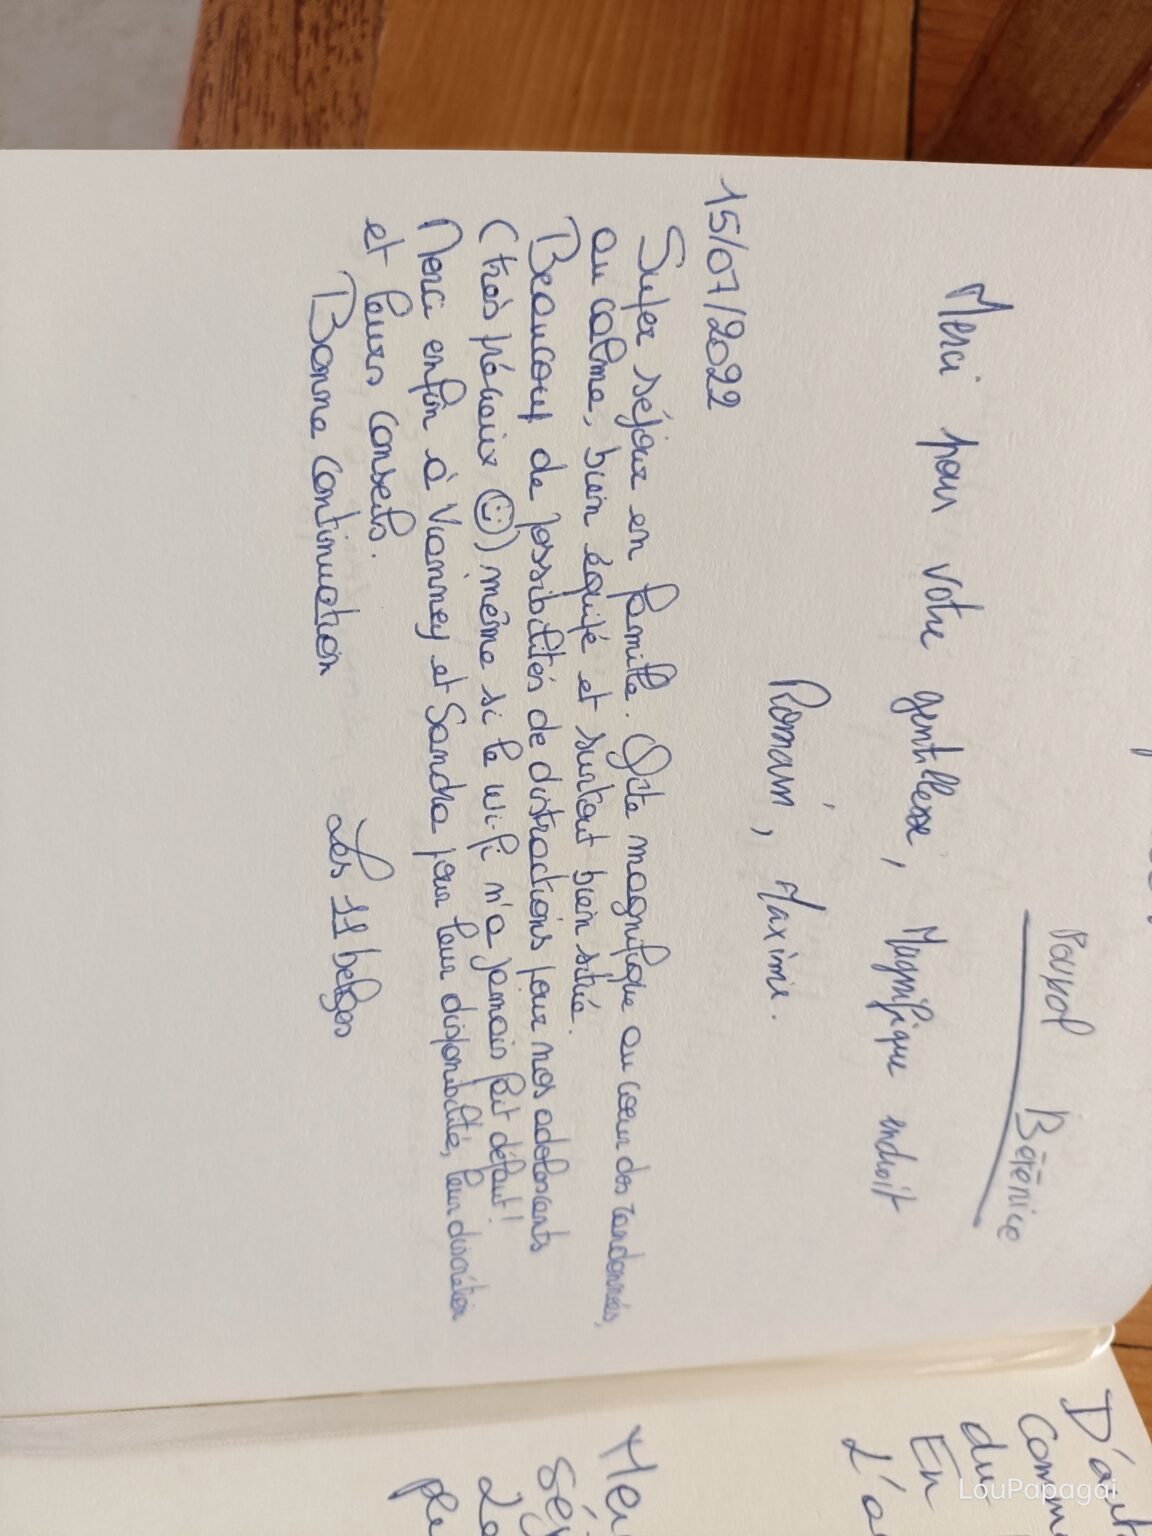 Poupol Bérénice
Merci pour votre gentillesse, Magnifique endroit
Romain, Maxime.
15/07/2022
Super séjour en famille. Gîte magnifique au cœur des randonnées,
au calme, bien équipé et surtout bien situé.
Beaucoup de possibilités de distractions pour nos adolescents
(très précieux ☺) même si le wi-fi n'a jamais fait défaut!
Merci enfin à Vianney et Sandra pour leur disponibilité, leur discrétion
et leurs conseils.
Bonne continuation
Les 11 belges
D'aut
Comm
du
En
L'a
Mer
Séj
pl
LouPapagai